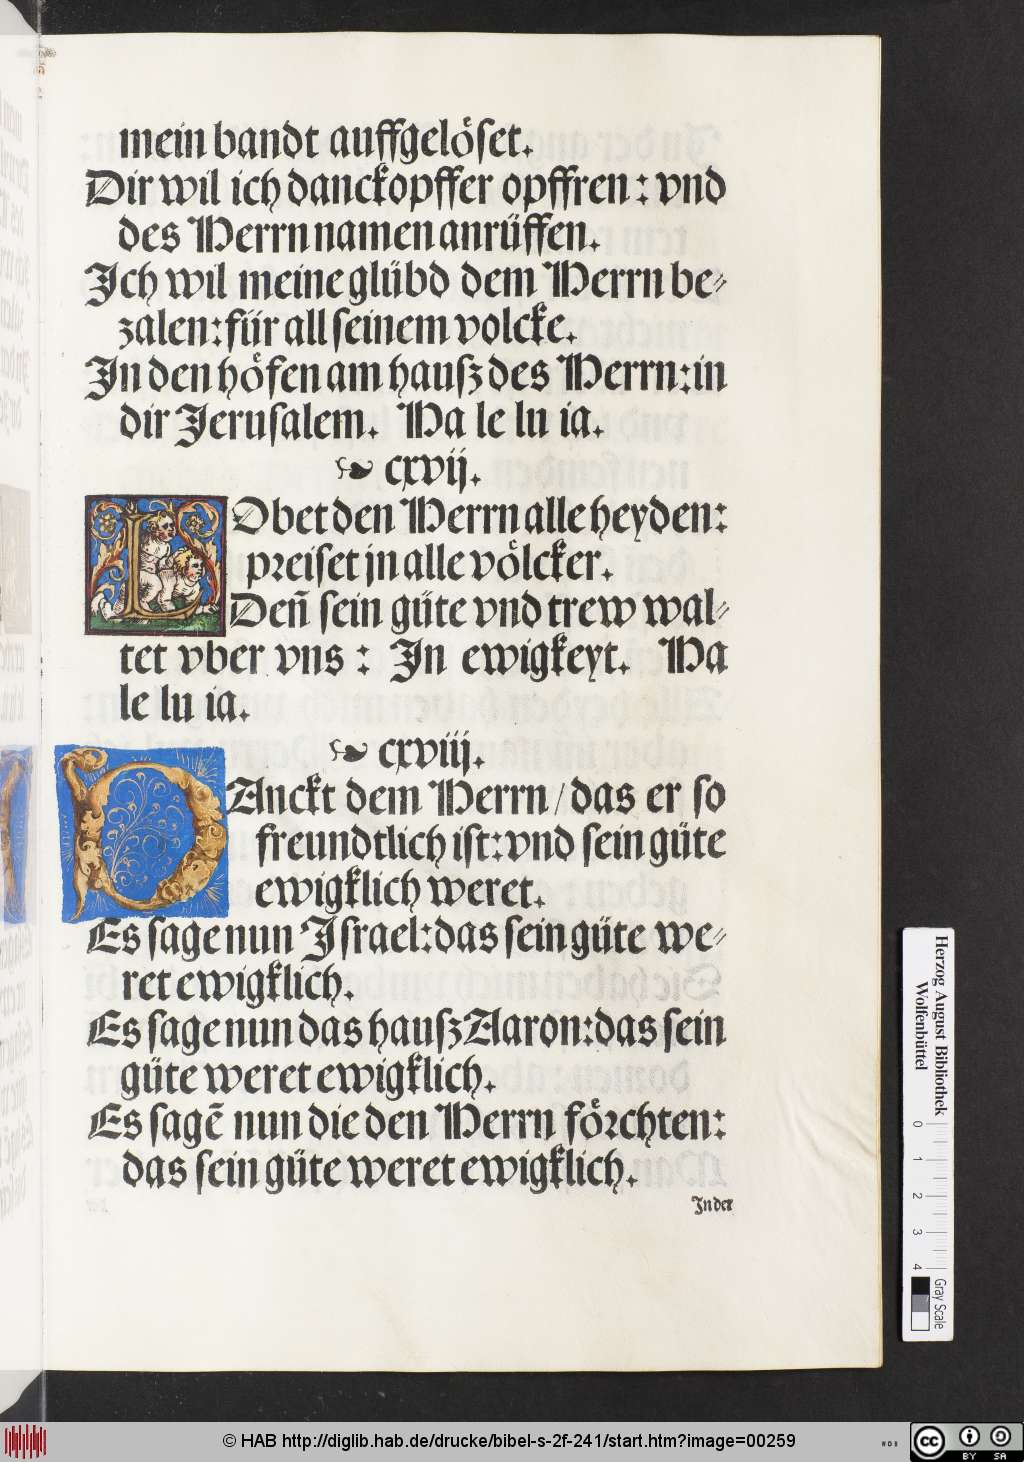 mein bandt auffgelöset.
Dir wil ich danckopffer opffren : vnd
des Herrn namen anrüffen.
Ich wil meine glübd dem Herrn be⸗
zalen: für all seinem volcke.
In den höfen am hausz des Herrn: in
dir Jerusalem. Ha le lu ia.
cxvij.
LObet den Herrn alle heyden:
preiset jn alle völcker.
Deñ sein güte vnd trew wal⸗
tet vber vns : In ewigkeyt. Ha
le lu ia.
cxviij.
DAnckt dem Herrn / das er so
freundtlich ist: vnd sein güte
ewigklich weret.
Es sage nun Israel: das sein güte we⸗
ret ewigklich.
Es sage nun das hausz Aaron: das sein
güte weret ewigklich.
Es sagē nun die den Herrn förchten:
das sein güte weret ewigklich.
In der
Herzog August Bibliothek
Wolfenbüttel
0 1 2 3 4
Gray Scale
© HAB http://diglib.hab.de/drucke/bibel-s-2f-241/start.htm?image=00259
WDB
cc BY SA